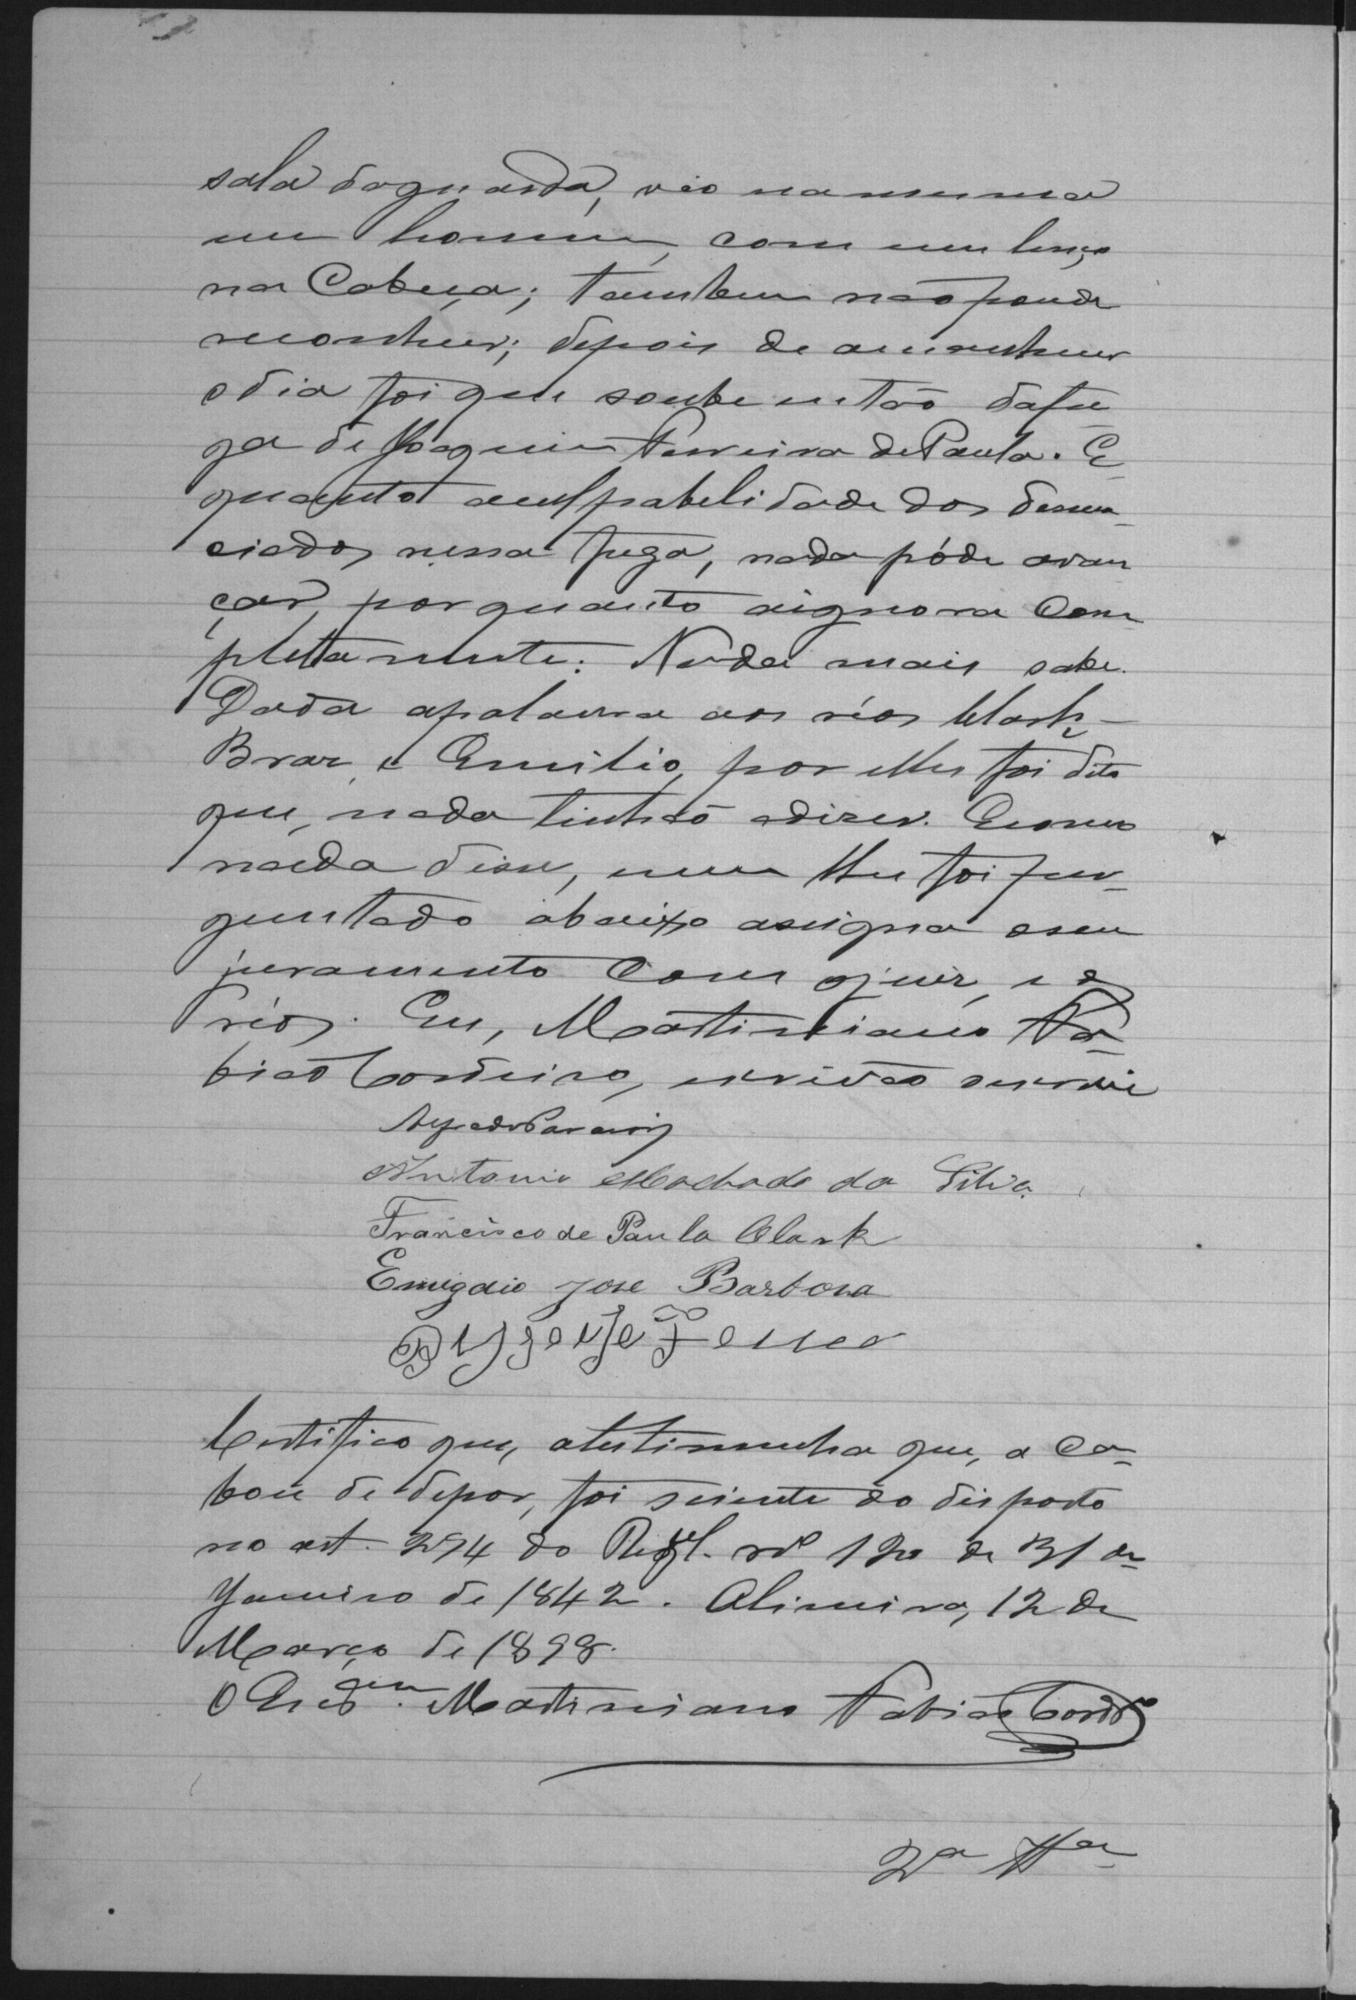 sala da guarda, vio na mesma
um homem, com um lenço
na Cabeça; tambem não poude
reconhecer; depois de amanhecer
o dia foi que soube então da fu
ga de Joaquim Ferreira de Paula. E
quanto a culpabelidade dos denun-
ciados nessa fuga, nada póde avan
çar, porquanto aignora com
pletamente. Nada mais sabe.
Dada apalavra aos réos Clark,
Braz, e Emilio, por elles foi dito
que, nada tinhão adizer. E como
nada disse, nem lhe foi per-
guntado abaixo assigna o seu
juramento com o juiz, e os
réos. Eu, Martiniano Fa-
bião Cordeiro, escrivão escrevi
Antonio Machado da Silva
Francisco de Paula Clark
Emigdio Jose Barbosa
Certifico que, atestimunha que, a ca-
bou de depor, foi sciente do disposto
no art. 294 do Regl. nº 120 de 31 de
Janeiro de 1842. Alimeira, 12 de
Março de 1898.
O Escam. Martiniano Fabião Cordrº
2ª Ttª